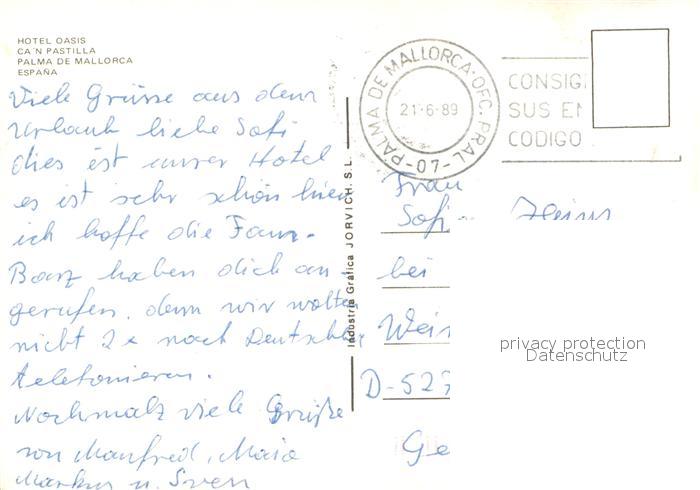 HOTEL OASIS
CA'N PASTILLA
PALMA DE MALLORCA
ESPAÑA
Viele Grüsse aus dem
Urlaub liebe Sofi
dies ist unser Hotel
es ist sehr schön hier
ich hoffe die Fam.
Barz haben dich an-
gerufen. denn wir wollten
nicht 2x nach Deutschl.
telefonieren.
Nochmalz viele Grüße
von Manfred, Maia
Markus u. Sven
Industria Gráfica JORVICH. S.L.
PALMA DE MALLORCA. OFC. PRAL -07-
21-6-89
CONSIG
SUS EN
CODIGO
Frau
Sofi
bei
Wein
D-527
Ge
privacy protection
Datenschutz